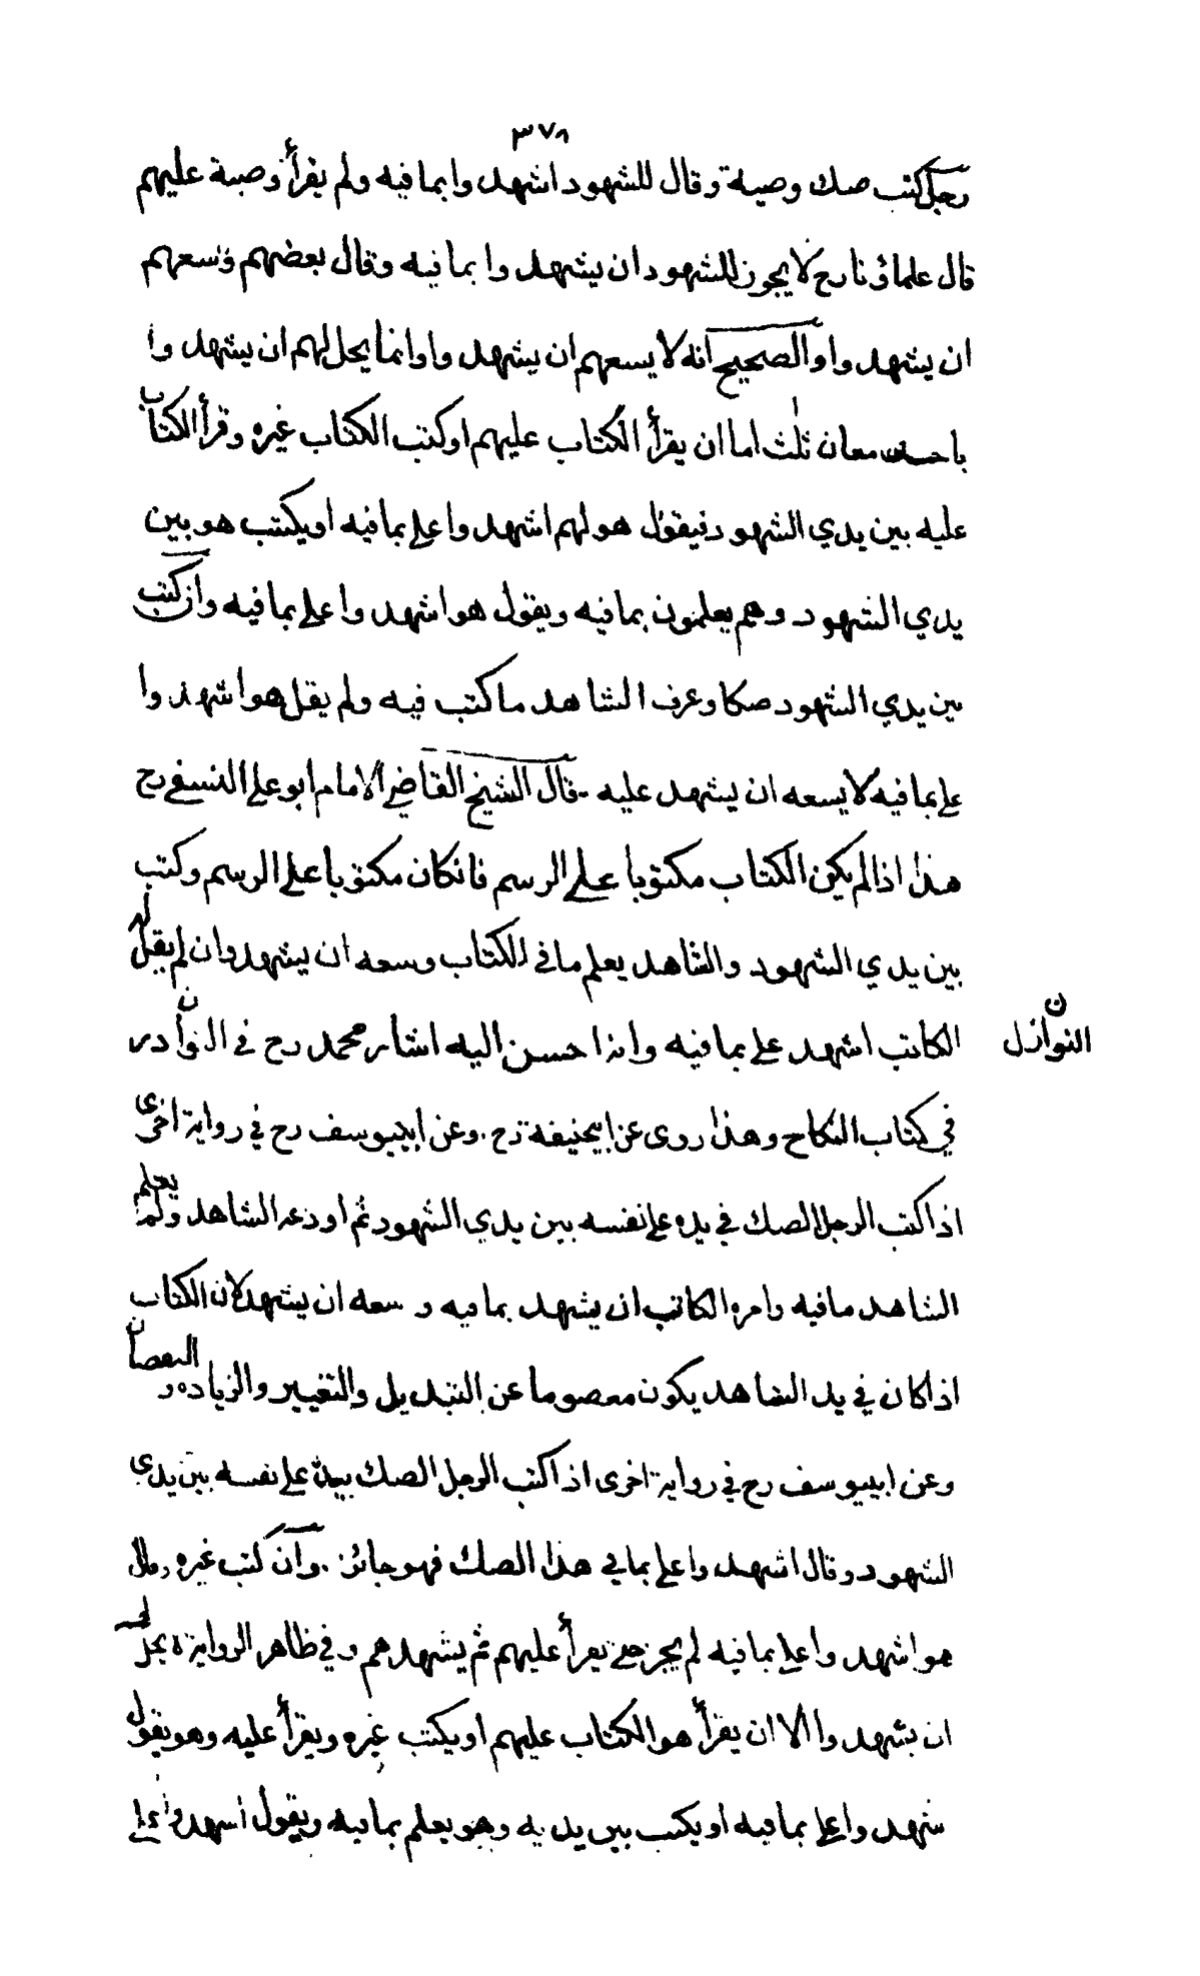 ٣٧٨
رجل كتب صك وصية وقال للشهود اشهدوا بما فيه ولم يقرأ وصية عليهم
قال علماؤنا رح لا يجوز للشهود ان يشهدوا بما فيه وقال بعضهم وسعهم
ان يشهدوا والصحيح انه لا يسعهم ان يشهدوا وانما يحل لهم ان يشهدوا
باحد معان ثلث اما ان يقرأ الكتاب عليهم او كتب الكتاب غيره وقرأ الكتاب
عليه بين يدي الشهود فيقول هو لهم اشهدوا علي بما فيه او يكتب هو بين
يدي الشهود وهم يعلمون بما فيه ويقول هو اشهدوا علي بما فيه وان كتب
بين يدي الشهود صكا وعرف الشاهد ما كتب فيه ولم يقل هو اشهدوا
علي بما فيه لا يسعه ان يشهد عليه قال الشيخ القاضي الامام ابو علي النسفي رح
هذا اذا لم يكن الكتاب مكتوبا على الرسم فانكان مكتوبا على الرسم وكتب
بين يدي الشهود والشاهد يعلم ما في الكتاب وسعه ان يشهد وان لم يقل له
الكاتب اشهد علي بما فيه واذا حسن اليه اشار محمد رح في النوادر
ن
النوازل
في كتاب النكاح وهذا روى عن ابيحنيفة رح وعن ابييوسف رح في رواية اخرى
اذا كتب الرجل الصك في يده على نفسه بين يدي الشهود ثم اودعه الشاهد ولم يعلم
الشاهد ما فيه وامره الكاتب ان يشهد بما فيه وسعه ان يشهد لان الكتاب
اذا كان في يد الشاهد يكون معصوما عن التبديل والتغيير والزيادة والنقصان
وعن ابييوسف رح في رواية اخرى اذا كتب الرجل الصك بيده على نفسه بين يدي
الشهود وقال اشهدوا علي بما في هذا الصك فهو جائز وان كتب غيره وقال
هو اشهدوا علي بما فيه لم يجز حتى يقرأ عليهم ثم يشهدهم وفي ظاهر الرواية لا يحل لهم
ان يشهدوا الا ان يقرأ هو الكتاب عليهم او يكتب غيره ويقرأ عليه وهو يقول
شهدوا علي بما فيه او يكتب بين يديه وهو يعلم بما فيه ويقول اشهدوا علي